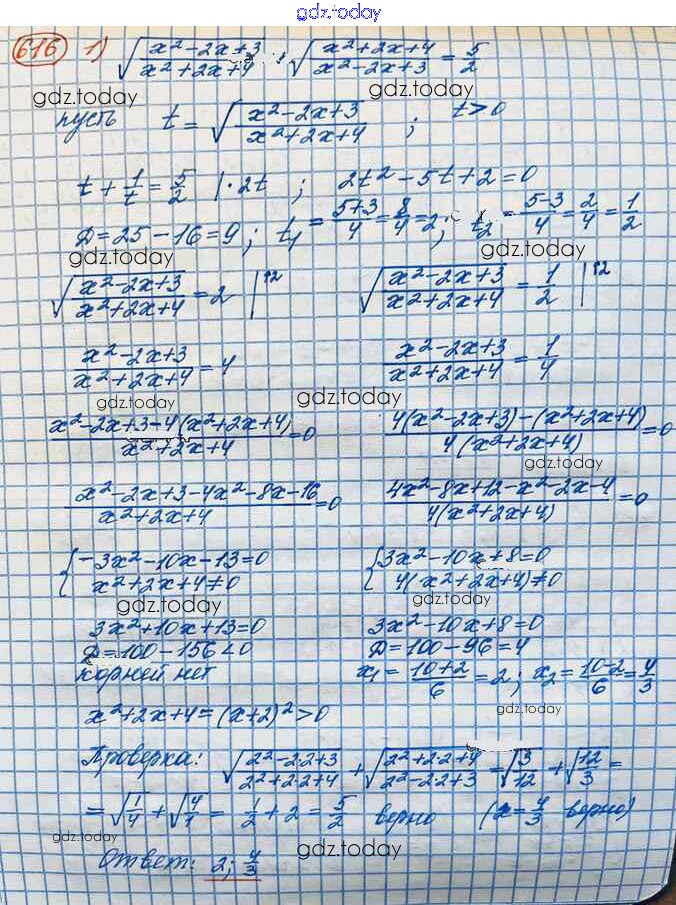 gdz.today
616 1) √((x²-2x+3)/(x²+2x+4)) + √((x²+2x+4)/(x²-2x+3)) = 5/2
gdz.today gdz.today
пусть t = √((x²-2x+3)/(x²+2x+4)) ; t>0
t + 1/t = 5/2 | ·2t ; 2t²-5t+2=0
Д=25-16=9; t₁ = (5+3)/4 = 8/4 = 2; t₂ = (5-3)/4 = 2/4 = 1/2
gdz.today gdz.today
√((x²-2x+3)/(x²+2x+4)) = 2 |↑2 √((x²-2x+3)/(x²+2x+4)) = 1/2 |↑2
(x²-2x+3)/(x²+2x+4) = 4 (x²-2x+3)/(x²+2x+4) = 1/4
gdz.today gdz.today
(x²-2x+3-4(x²+2x+4))/(x²+2x+4) = 0 (4(x²-2x+3)-(x²+2x+4))/(4(x²+2x+4)) = 0
gdz.today
(x²-2x+3-4x²-8x-16)/(x²+2x+4) = 0 (4x²-8x+12-x²-2x-4)/(4(x²+2x+4)) = 0
{ -3x²-10x-13=0 { 3x²-10x+8=0
x²+2x+4≠0 4(x²+2x+4)≠0
gdz.today gdz.today
3x²+10x+13=0 3x²-10x+8=0
Д=100-156<0 Д=100-96=4
корней нет x₁ = (10+2)/6 = 2; x₂ = (10-2)/6 = 4/3
gdz.today
x²+2x+4=(x+2)²>0
Проверка: √((2²-2·2+3)/(2²+2·2+4)) + √((2²+2·2+4)/(2²-2·2+3)) = √(3/12) + √(12/3) =
= √(1/4) + √(4/1) = 1/2 + 2 = 5/2 верно (x=4/3 верно)
gdz.today gdz.today
Ответ: 2; 4/3